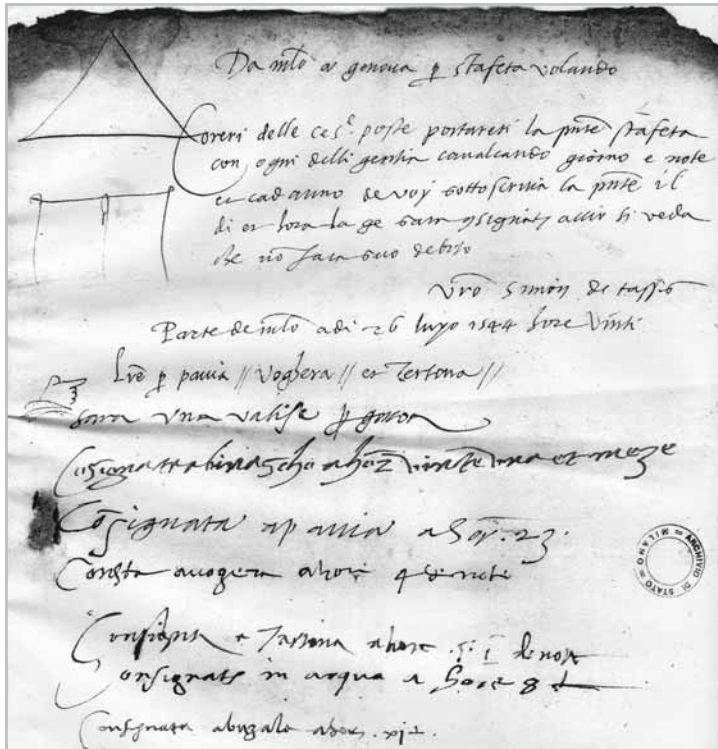 Da mlo a genova p stafeta volando
Coreri delle ces.e poste portareti la pnte stafeta
con ogni dilligentia cavalcando giorno e note
et cadauno de voy sottoscriva la pnte il
di et hora la ge sara consignata accio si veda
che no faca suo debito
vro Simon de tassis
Parte de mlo a di 26 luyo 1544 hore vinti
Lre p pavia // Voghera // et Tertona //
sara una valise p genoa
Cosignata a binascho a hore vinte una et meze
Cosignata a pavia a hor. 23.
Consta a vogera a hore 4 de note
Consignata a Tartona a hore de note
Consignata in acqua a hore 8
Consignata a hore xj
ARCHIVIO DI STATO = MILANO =